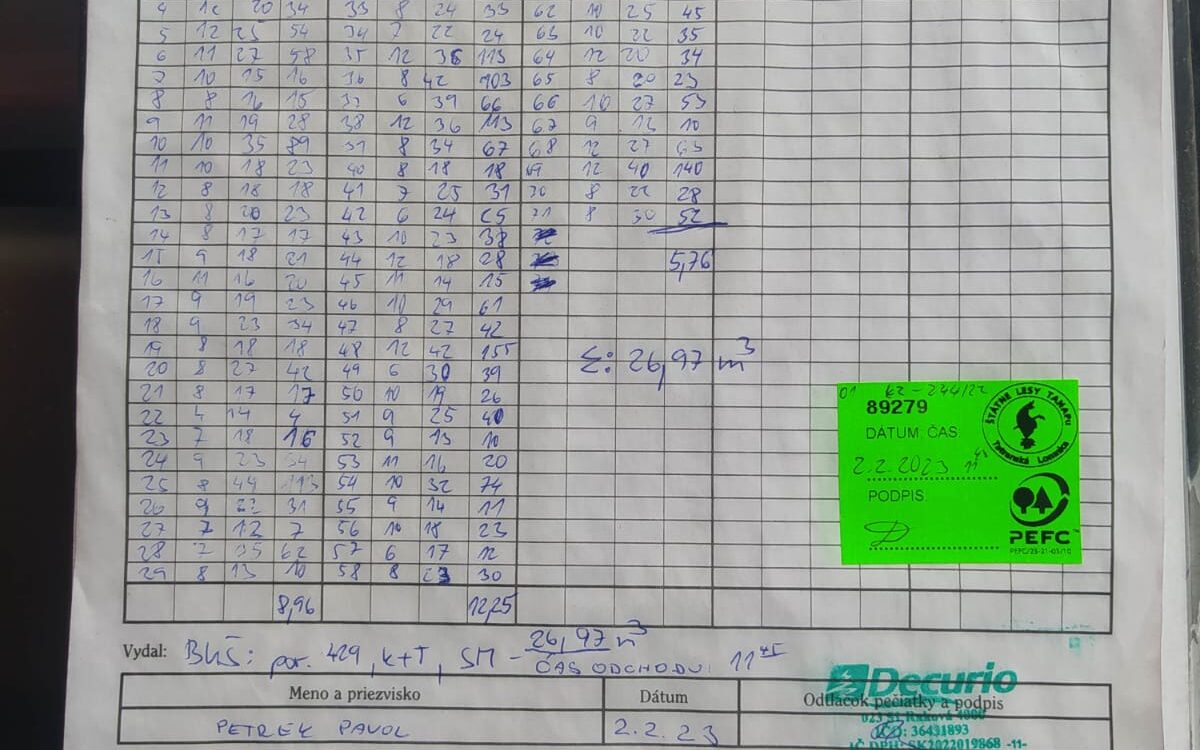 4 12 20 34 33 8 24 33 62 10 25 45
5 12 25 54 34 7 22 24 63 10 22 35
6 11 27 58 35 12 36 113 64 12 20 34
7 10 15 16 36 8 42 103 65 8 20 23
8 8 16 15 37 6 39 66 66 10 27 53
9 11 19 28 38 12 36 113 67 9 13 10
10 10 35 89 8 34 67 68 12 27
11 10 18 23 40 8 18 18 69 12 40 140
12 8 18 18 41 7 25 31 8 22 28
13 8 20 23 42 6 24 25 71 8 30 52
14 8 17 17 43 10 23 38
15 9 18 21 44 12 18 28 5,76
16 11 16 20 45 11 14 15
17 9 19 23 46 10 29 61
18 9 23 34 47 8 27 42
19 8 18 18 48 12 42 155
Σ: 26,97 m³
20 8 27 42 49 6 30 39
21 8 17 17 50 10 19 26
22 4 14 4 51 9 25 40
23 7 18 16 52 9 13 10
24 9 23 34 53 11 16 20
25 8 44 113 54 10 32 74
26 9 22 31 55 9 14 11
27 7 12 7 56 10 18 23
28 7 35 62 57 6 17 12
29 8 13 10 58 8 23 30
8,96 12,25
01 KZ-244/22
89279
DÁTUM, ČAS
2.2.2023 11
PODPIS
ŠTÁTNE LESY TANAPU
Tatranská Lomnica
PEFC™
PEFC/23-21-03/10
Vydal: BKŠ: por. 429, K+T, SM - 26,97 m³
ČAS ODCHODU: 11 45
Meno a priezvisko Dátum Odtlačok pečiatky a podpis
PETREK PAVOL 2.2.23
Decurio
023 51 Raková
IČO: 36431893
IČ DPH: SK2022019868 -11-